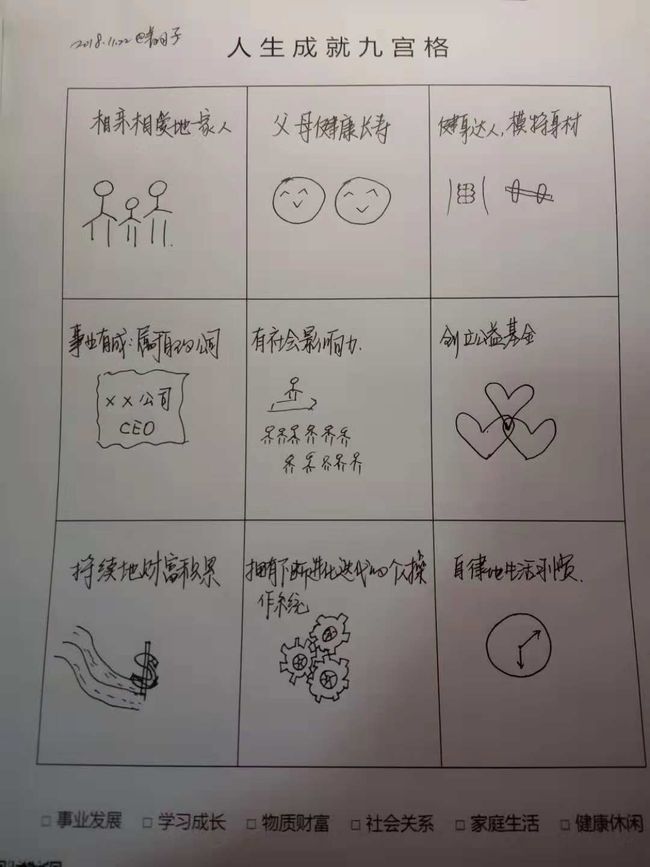 2018.11.22 @
人生成就九宫格
相亲相爱地一家人
父母健康长寿
健身达人,模特身材
事业有成:属于自己的公司
××公司
CEO
有社会影响力.
创立公益基金
持续地财富积累
拥有不断进化迭代的个人操
作系统
自律地生活习惯.
□ 事业发展 □ 学习成长 □ 物质财富 □ 社会关系 □ 家庭生活 □ 健康休闲